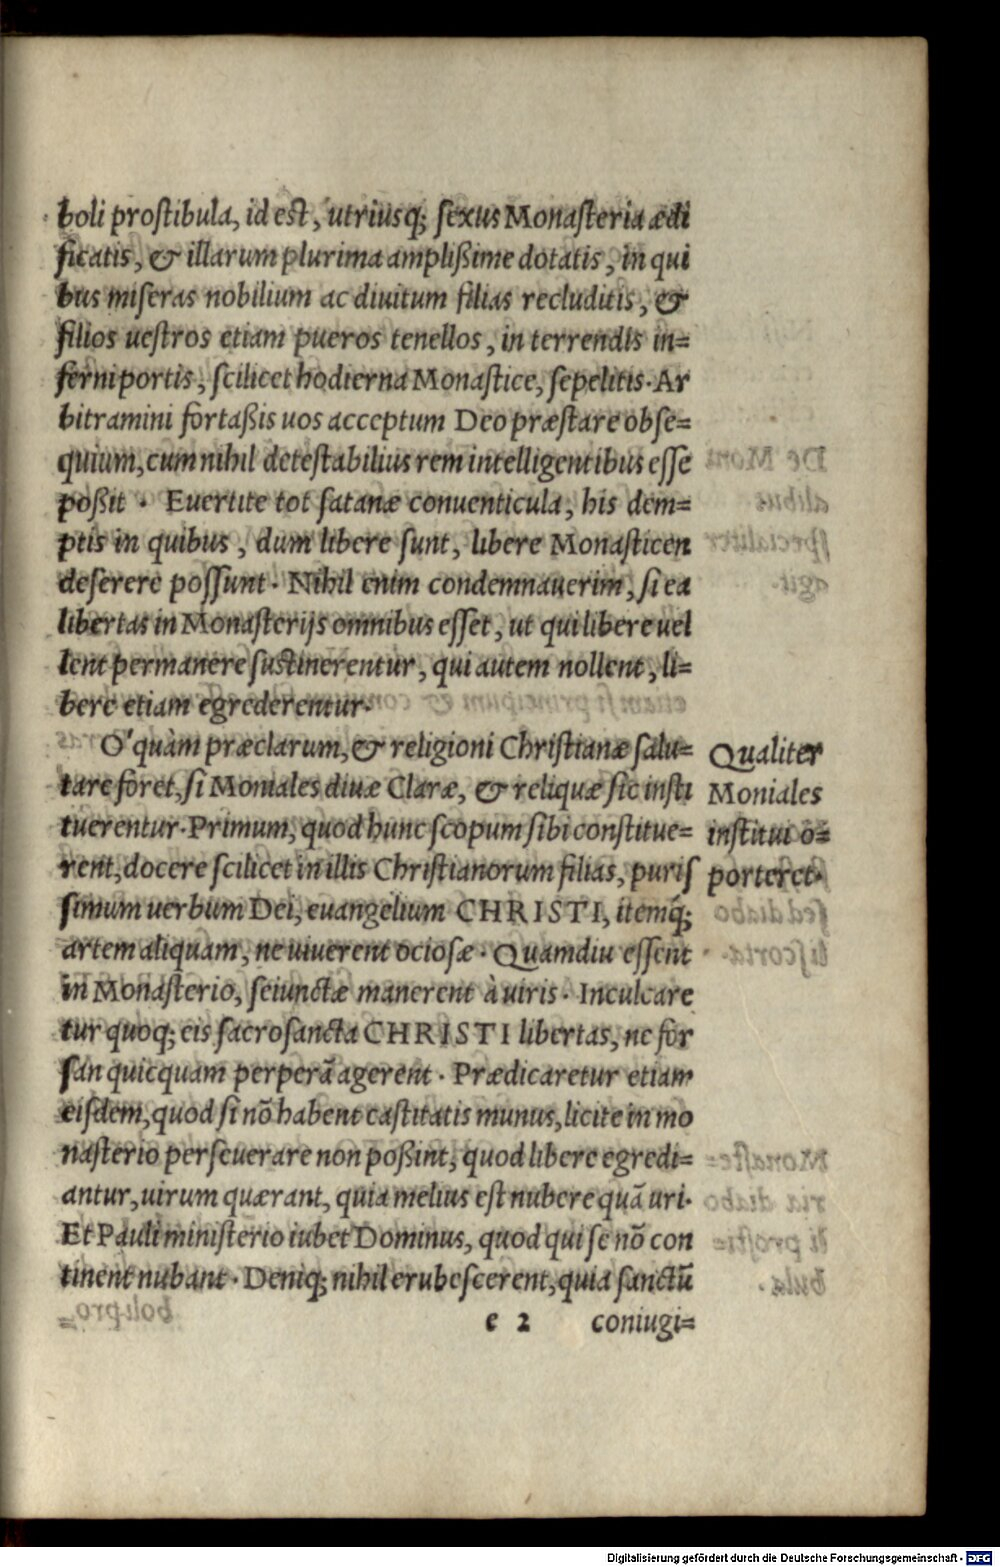 boli prostibula, id est, utriusq; sexus Monasteria ædi
ficatis, & illarum plurima amplißime dotatis, in qui
bus miseras nobilium ac diuitum filias recluditis, &
filios uestros etiam pueros tenellos, in terrendis in=
ferni portis, scilicet hodierna Monastice, sepelitis. Ar
bitramini fortaßis uos acceptum Deo præstare obse=
quium, cum nihil detestabilius rem intelligentibus esse
poßit. Euertite tot satanæ conuenticula, his dem=
ptis in quibus, dum libere sunt, libere Monasticen
deserere possunt. Nihil enim condemnauerim, si ea
libertas in Monasterijs omnibus esset, ut qui libere uel
lent permanere sustinerentur, qui autem nollent, li=
bere etiam egrederentur.
O' quàm præclarum, & religioni Christianæ salu=
tare foret, si Moniales diuæ Claræ, & reliquæ sic insti
tuerentur. Primum, quod hunc scopum sibi constitue=
rent, docere scilicet in illis Christianorum filias, puris
simum uerbum Dei, euangelium CHRISTI, itemq́;
artem aliquam, ne uiuerent ociosæ. Quamdiu essent
in Monasterio, seiunctæ manerent à uiris. Inculcare
tur quoq; eis sacrosancta CHRISTI libertas, ne for
san quicquam perperā agerent. Prædicaretur etiam
eisdem, quod si nō habent castitatis munus, licite in mo
nasterio perseuerare non poßint, quod libere egredi=
antur, uirum quærant, quia melius est nubere quā uri.
Et Pauli ministerio iubet Dominus, quod qui se nō con
tinent nubant. Deniq; nihil erubescerent, quia sanctū
e 2 coniugi=
Qualiter
Moniales
institui o=
porteret.
Digitalisierung gefördert durch die Deutsche Forschungsgemeinschaft - DFG